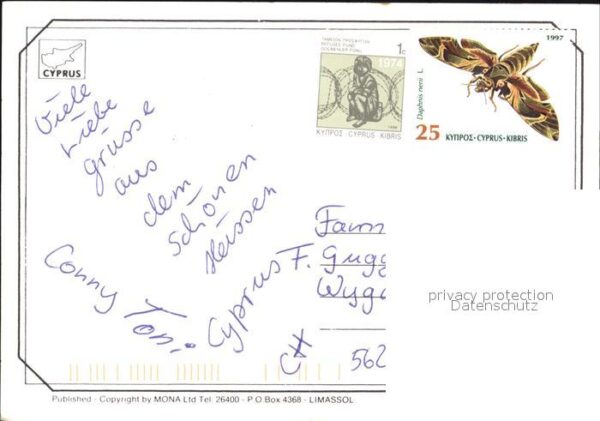 CYPRUS
1c
1974
ΚΥΠΡΟΣ·CYPRUS·KIBRIS
1997
Daphnis nerii L.
25 ΚΥΠΡΟΣ·CYPRUS·KIBRIS
Viele
Liebe
grüsse
aus
dem
schönen
Heissen
Cyprus
Conny Toni
Fam
F. Gugg
Wyg
CH 562
privacy protection
Datenschutz
Published - Copyright by MONA Ltd Tel: 26400 - P.O Box 4368 - LIMASSOL